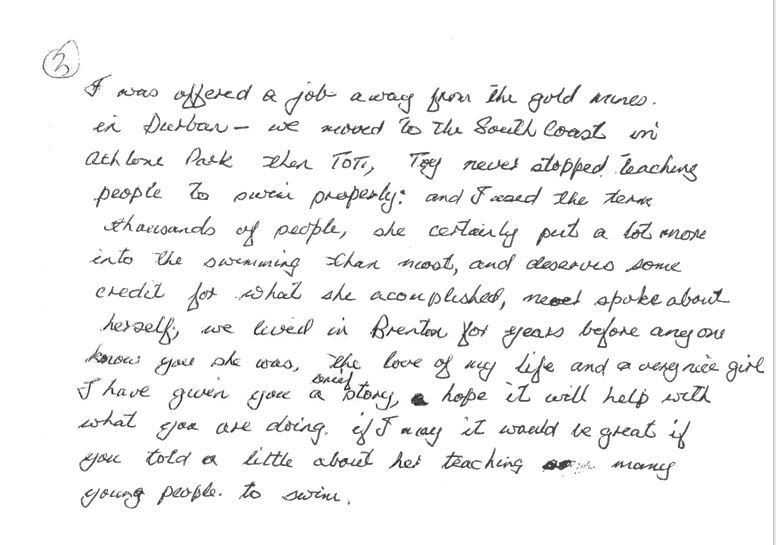 3
I was offered a job away from the gold mines.
in Durban - we moved to the South Coast in
Athlone Park then Toti, Toy never stopped teaching
people to swim properly: and I used the term
thousands of people, she certainly put a lot more
into the swimming than most, and deserves some
credit for what she acomplished, never spoke about
herself, we lived in Brenton for years before anyone
knows you she was, the love of my life and a very nice girl
I have given you a brief story, hope it will help with
what you are doing. if I may it would be great if
you told a little about her teaching many
young people. to swim.